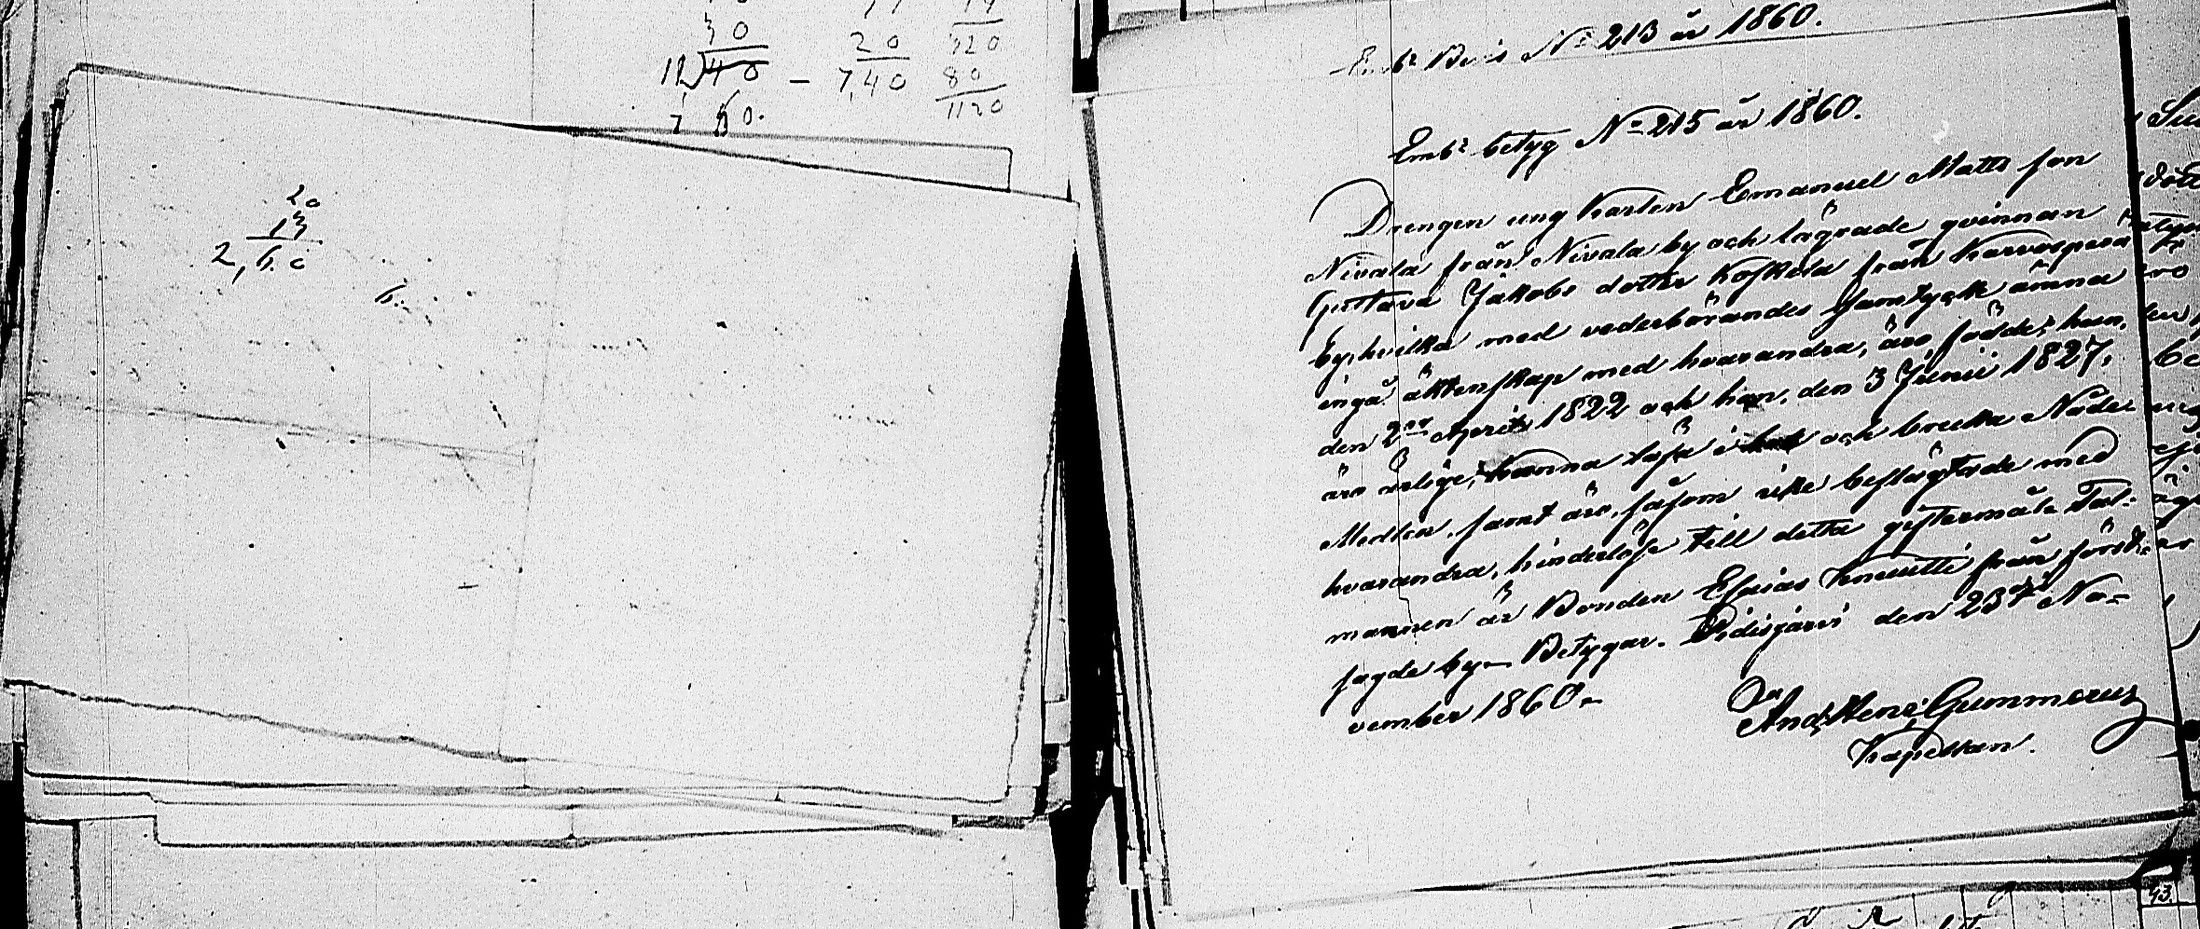 30
12)40 - 7,40
7 60.
20
320
80
1120
20
13
2,6.0
6.
Embs Bevis No 213 år 1860.
Embs betyg No 215 år 1860.
Drengen ung Karlen Emanuel Matts son
Nivala från Nivala by och lägrade qvinnan
Gustava Jakobs dotter Koskela från Karvosperä
by, hvilka med vederbörandes samtycke ämna
ingå äktenskap med hvarandra, äro födde; hon,
den 2dra April 1822 och han, den 3 Junii 1827,
äro ärlige, kunna läsa i bok och bruka Nåde
Medlen, samt äro, såsom icke beslägtade med
hvarandra, hinderlöse till detta giftermål. Tal-
mannen är Bonden Esaias Knuutti från först-
sagde by. Betygar. Pidisjärvi den 23dje No-
vember 1860.
And. Henr. Gummerus
Kapellan.
43.